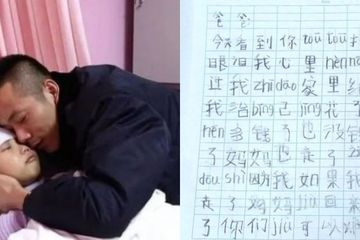 爸爸:
今天看到你 tōu tōu
眼泪我心里 hěn
过我 zhī dào 家里
我治 bìng 已 jīng 花了
hěn 多钱了也没
了妈妈也走了
dōu shì 因为我如果我
走了妈妈 jiù 回来
了你们 jiù 可以